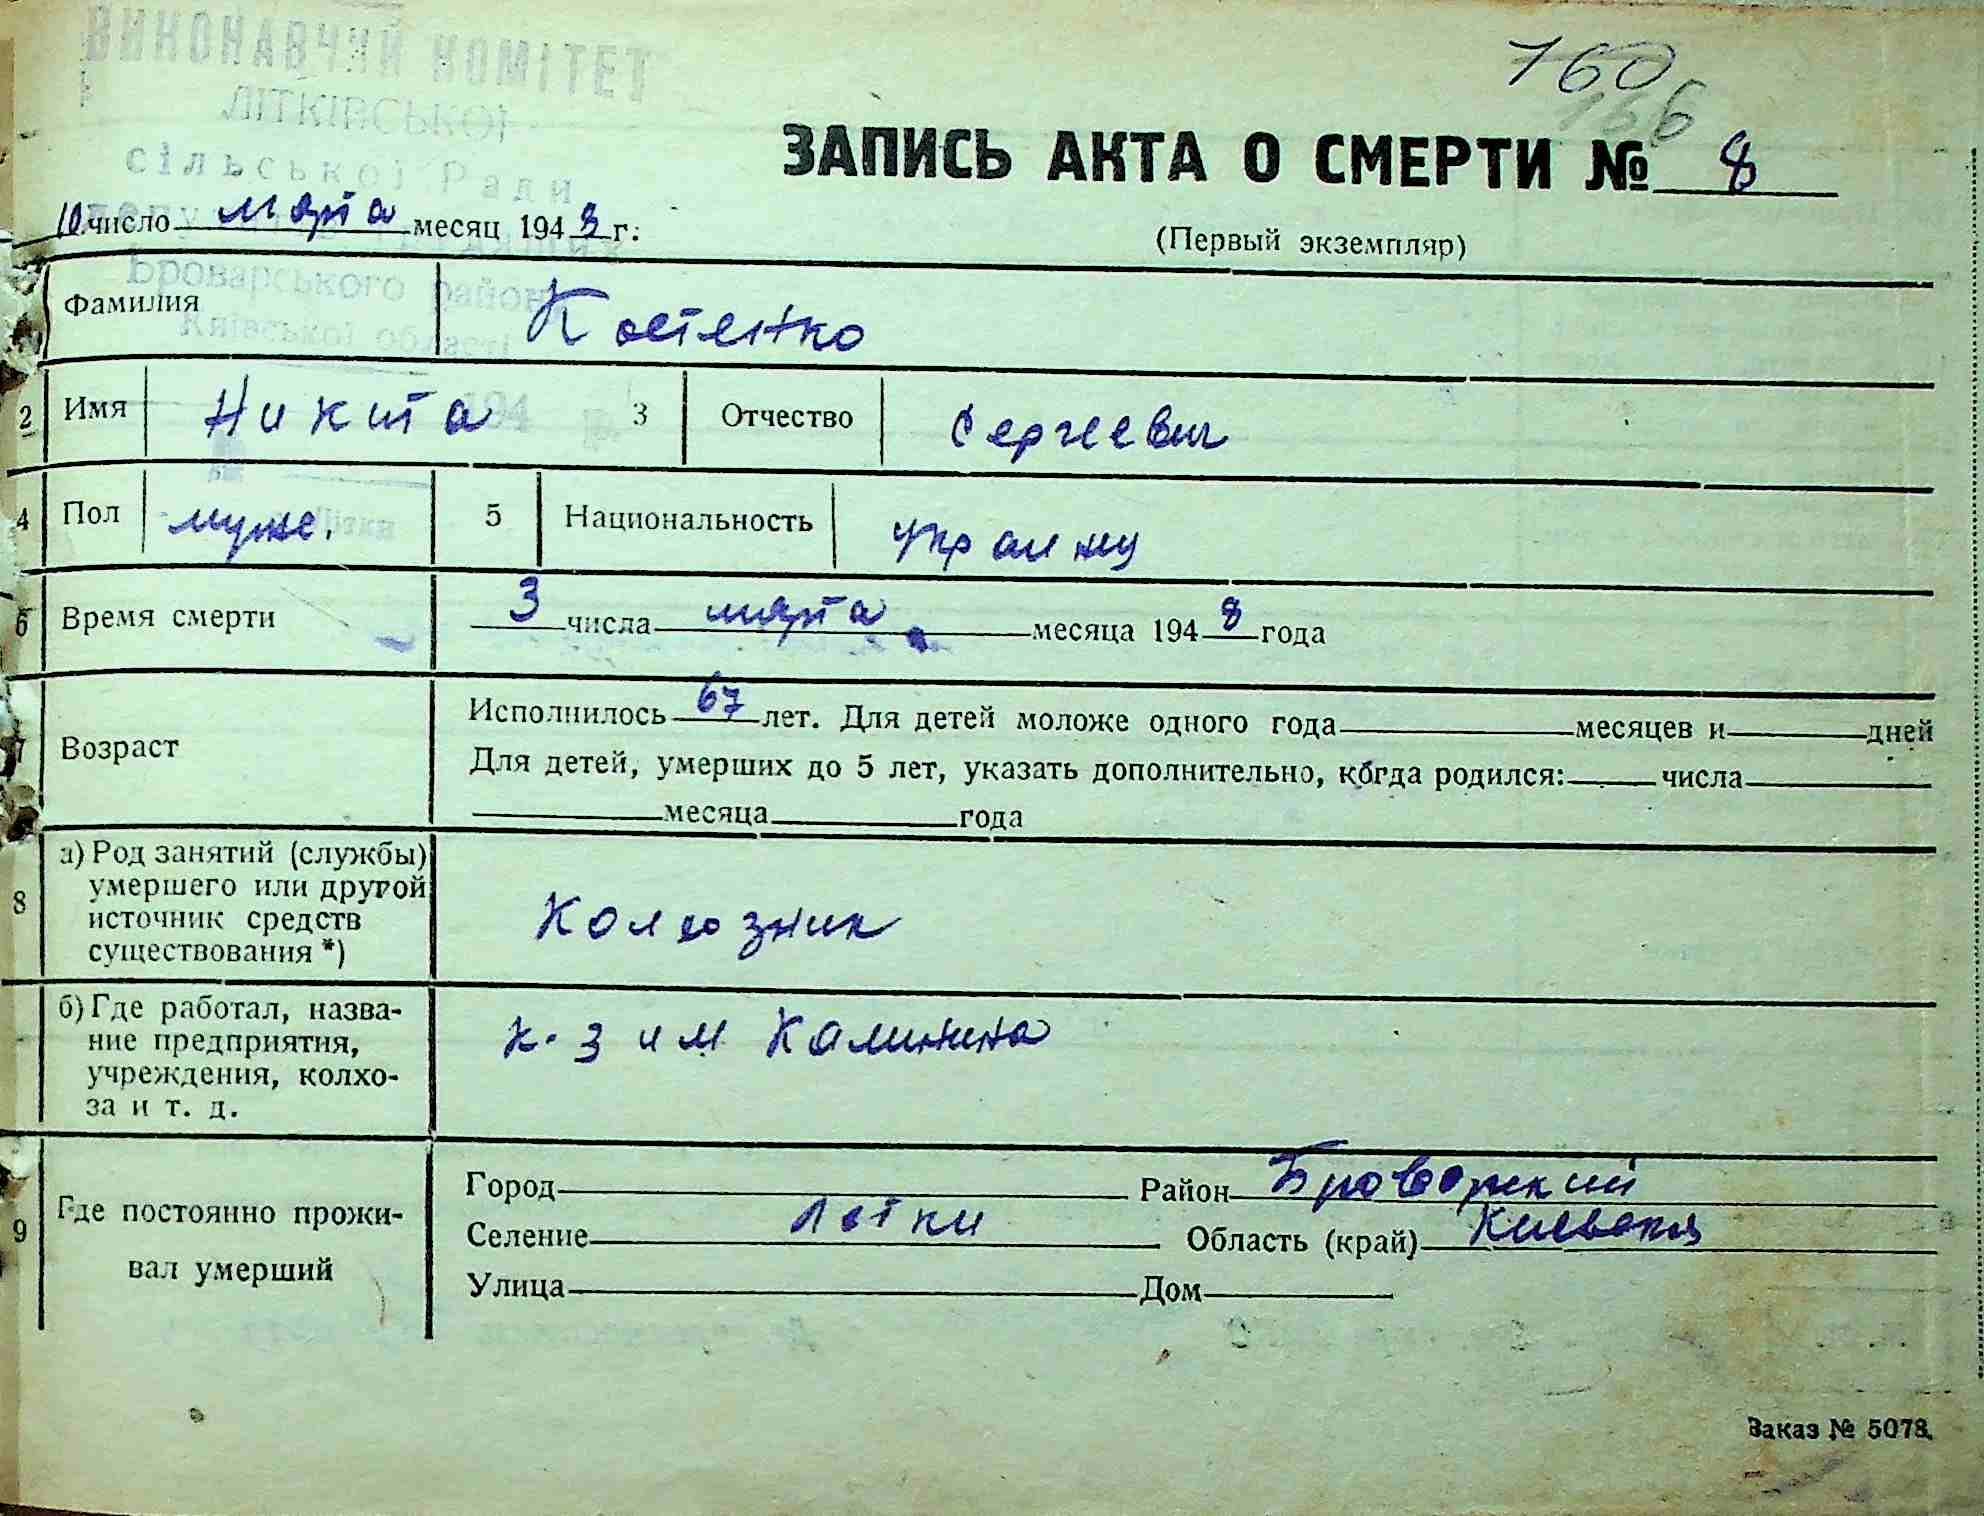 ВИКОНАВЧИЙ КОМІТЕТ
ЛІТКІВСЬКОЇ
сільської Ради
Броварського район
Київської області
194
Літки
160
166
ЗАПИСЬ АКТА О СМЕРТИ № 8
10 число марта месяц 1948 г.
(Первый экземпляр)
Фамилия Костенко
2 Имя Никита 3 Отчество Сергеевич
4 Пол муже. 5 Национальность украинц
6 Время смерти 3 числа марта месяца 1948 года
7 Возраст
Исполнилось 67 лет. Для детей моложе одного года месяцев и дней
Для детей, умерших до 5 лет, указать дополнительно, когда родился: числа
месяца года
8 а) Род занятий (службы)
умершего или другой
источник средств
существования *)
Колхозник
б) Где работал, назва-
ние предприятия,
учреждения, колхо-
за и т. д.
к-з им Калинина
9 Где постоянно прожи-
вал умерший
Город Район Броварский
Селение Летки Область (край) Киевская
Улица Дом
Заказ № 5078.